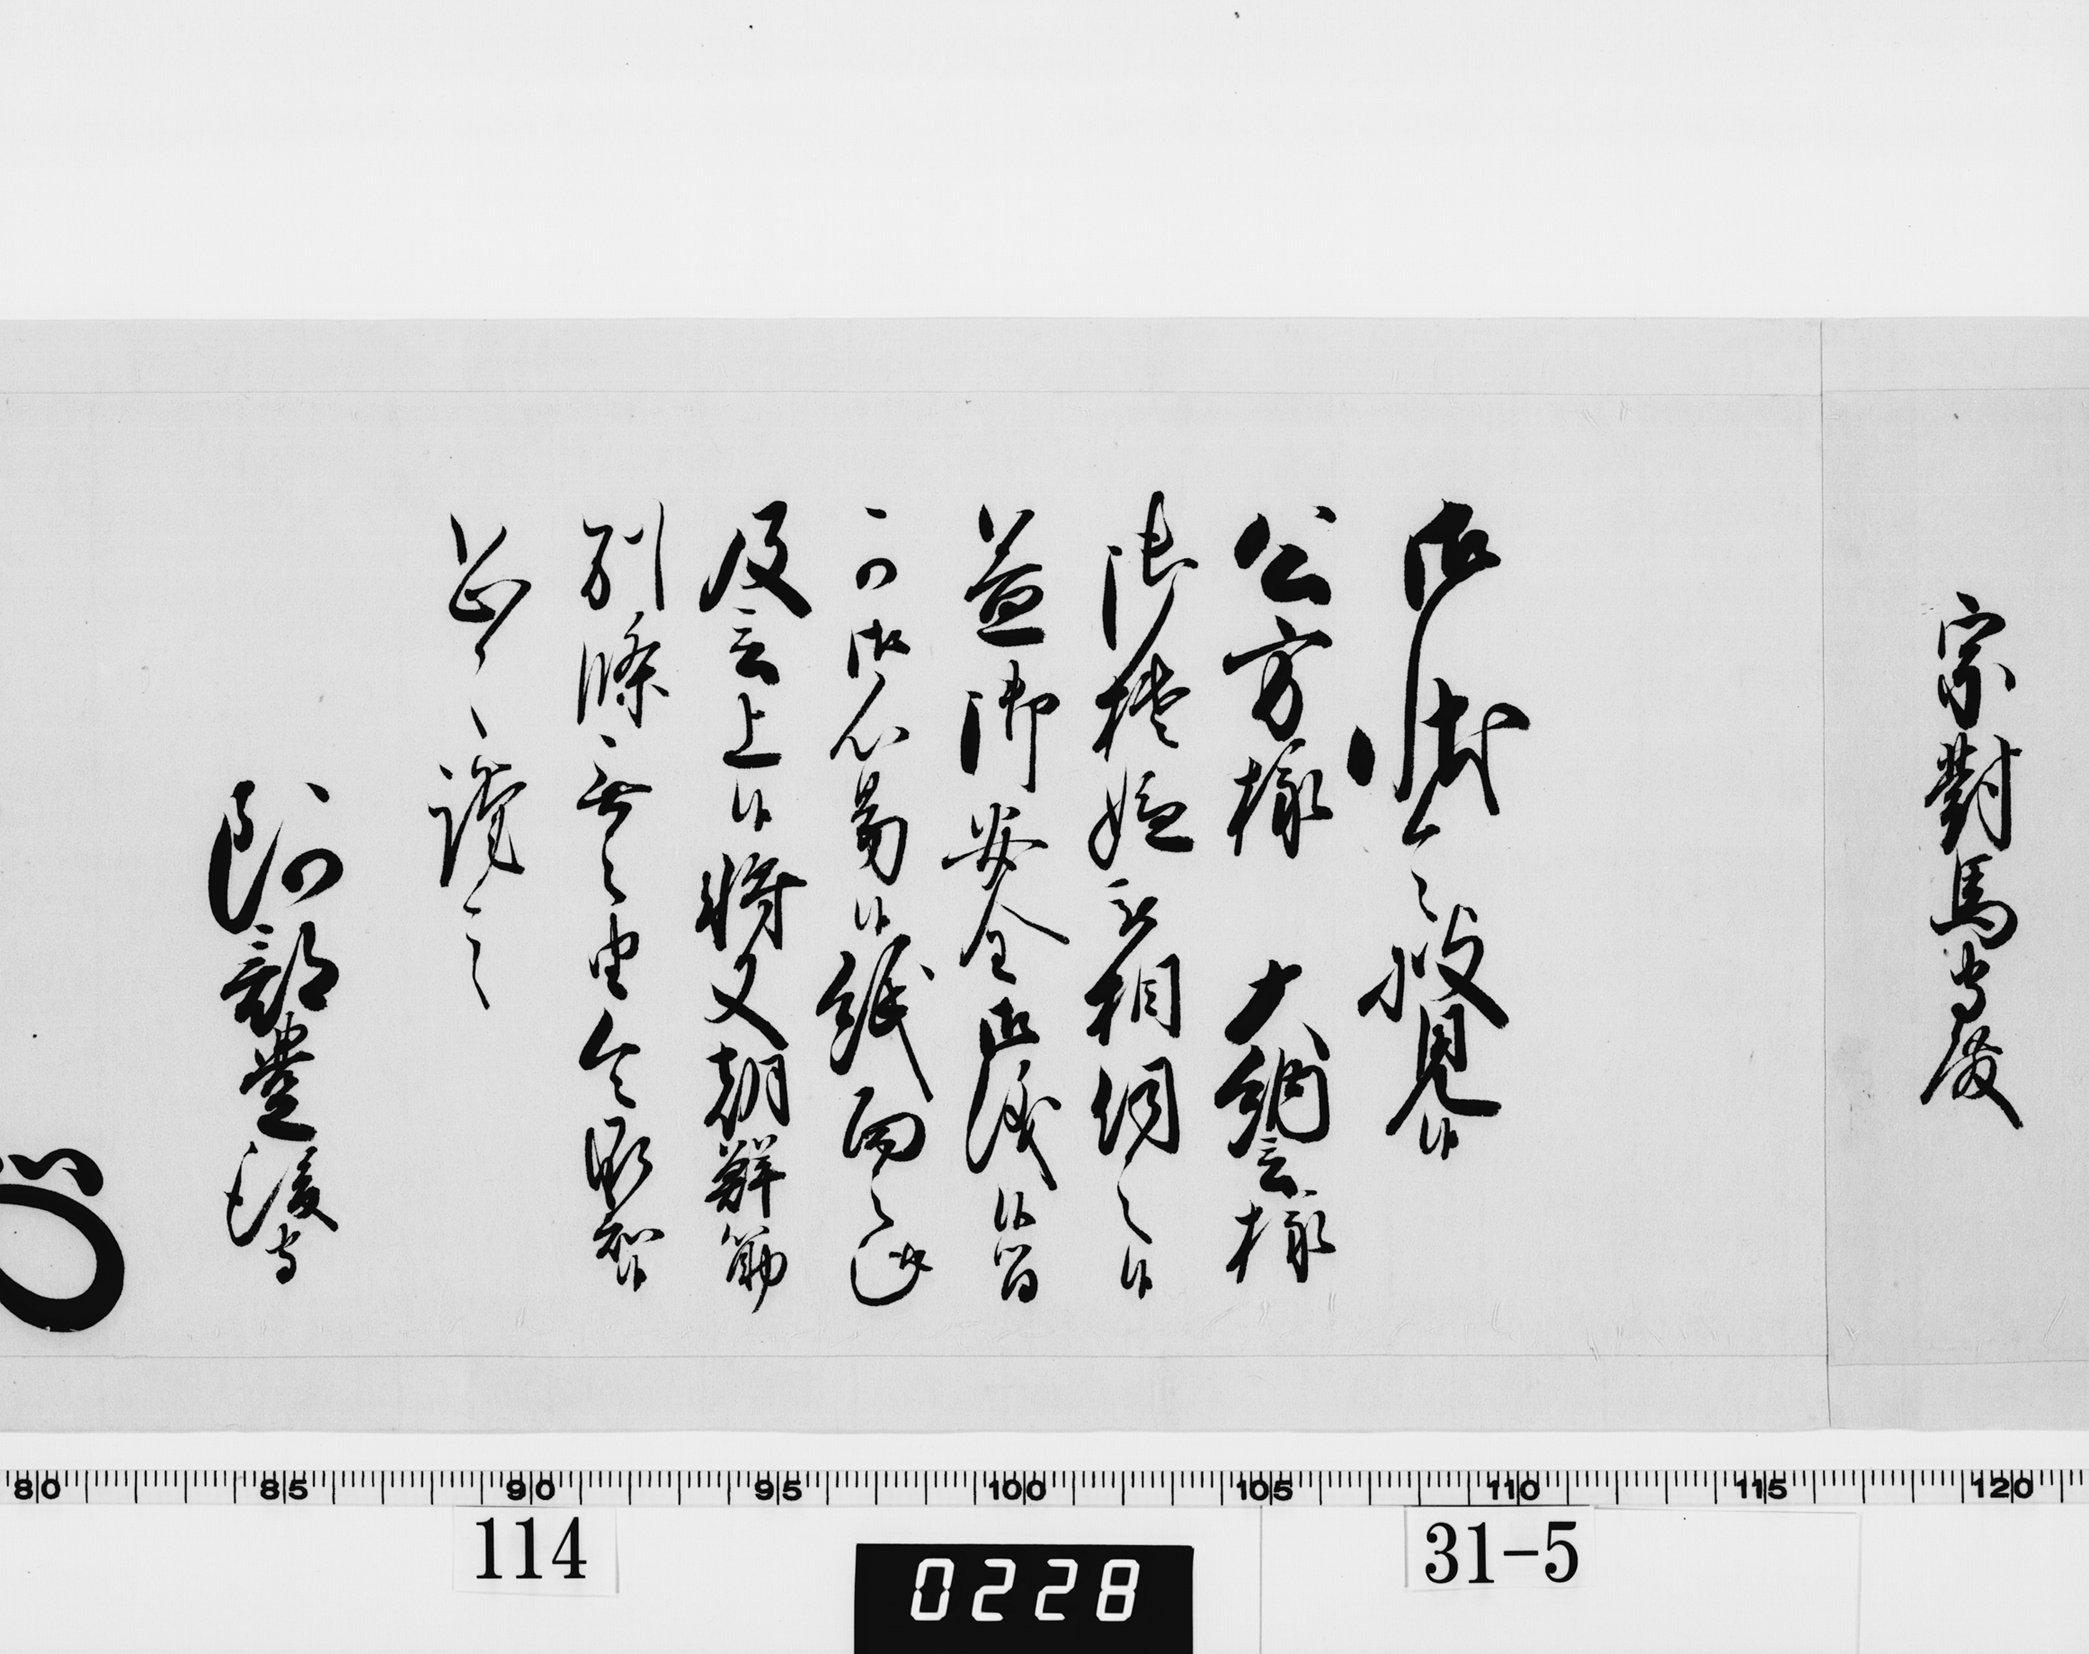 宗對馬守殿
御状令披見候
公方様 大納言様
御機嫌被相伺之候
益御安全御儀候間
可御心易候紙面之趣
及言上候将又朝鮮筋
別條無之由令承知候
恐々謹言
阿部豊後守
80 85 90 95 100 105 110 115 120
114
0228
31-5